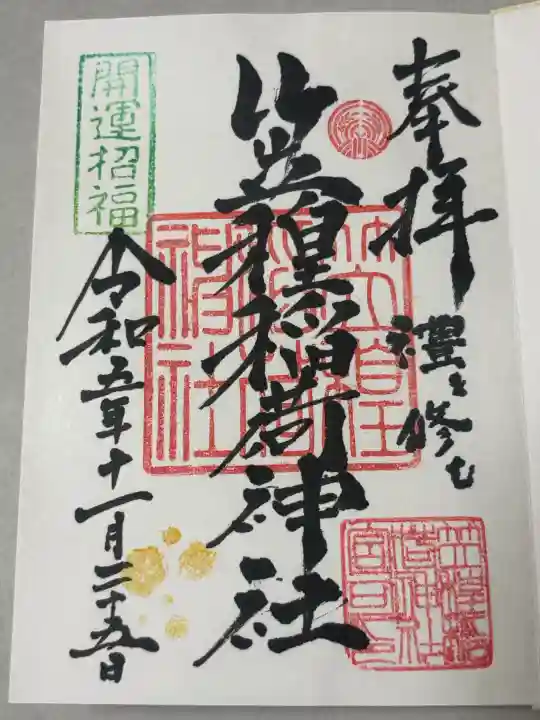 奉拝
禮を修む
笠䅣稲荷神社
令和五年十一月二十五日
開運招福